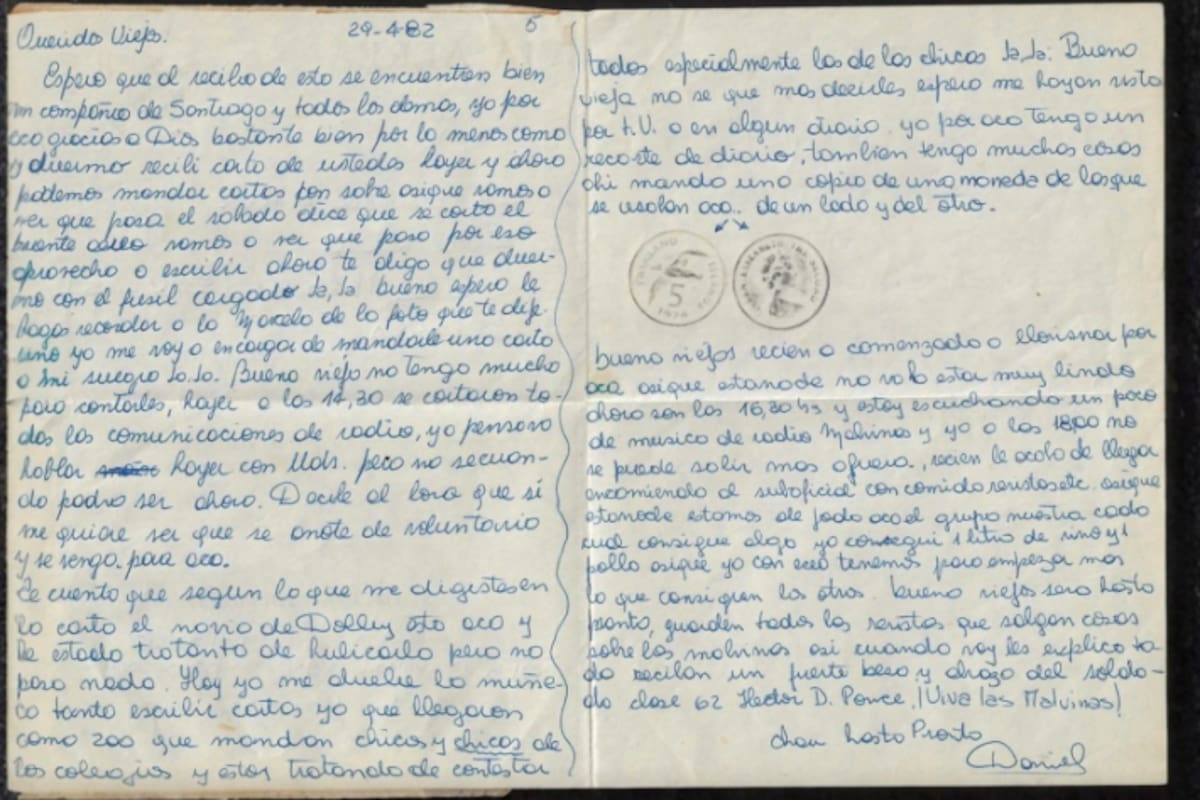 Queridos Viejos. 29-4-82 5
Espero que al recibo de esto se encuentren bien
en compañia de Santiago y todos los demas, yo por
aca gracias a Dios bastante bien por lo menos como
y duermo recibi carta de ustedes hayer y ahora
podemos mandar cartas por sobre asique vamos a
ver que pasa el sabado dice que se corta el
puente aereo vamos a ver que pasa por eso
aprovecho a escribir ahora te digo que duer-
mo con el fusil cargado Ja, Ja bueno espero le
hagas recordar a la Marcela de la foto que te dije
uno yo me voy a encargar de mandarle una carta
a mi suegro Ja. Ja. Bueno viejo no tengo mucho
para contarles, hayer a las 12,30 se cortaron to-
das las comunicaciones de radio, yo pensava
hablar hayer con Uds. pero no se cuan-
do podra ser ahora. Decile al lora que si
me quiere ver que se anote de voluntario
y se venga para aca.
Te cuento que segun lo que me digistes en
la carta el novio de Dolly esta aca y
he estado tratanto de hubicarlo pero no
paso nada. Hoy ya me duele la muñe-
ca tanto escribir cartas ya que llegaron
como 200 que mandan chicos y chicas de
los colegios y estoy tratando de contestar
todas especialmente las de las chicas Ja, Ja. Bueno
vieja no se que mas decirles espero me hayan visto
por t.V. o en algun diario yo por aca tengo un
recorte de diario, tambien tengo muchas cosas
ahi mando una copia de una moneda de las que
se usaban aca.. de un lado y del otro.
FALKLAND ISLANDS
5
1974
QUEEN ELIZABETH THE SECOND
bueno viejos recien a comenzado a lloviznar por
aca asique estanode no va a estar muy lindo
ahora son las 16,30 hs y estoy escuchando un poco
de musica de radio Malvinas y ya a las 18,00 no
se puede salir mas afuera, recien le acaba de llegar
encomienda al suboficial con comida revistas etc. asique
estanode estamos de joda aca el grupo nuestra cada
cual consigue algo yo consegui 1 litro de vino y 1
pollo asique ya con eso tenemos para empezar mas
lo que consiguen los otros. bueno viejos sera hasta
pronto, guarden todas las revistas que salgan cosas
sobre las malvinas asi cuando voy les explico to-
do reciban un fuerte beso y abrazo del solda-
do clase 62 Hector D. Ponce, ¡Viva las Malvinas!
chau hasta Pronto
Daniel